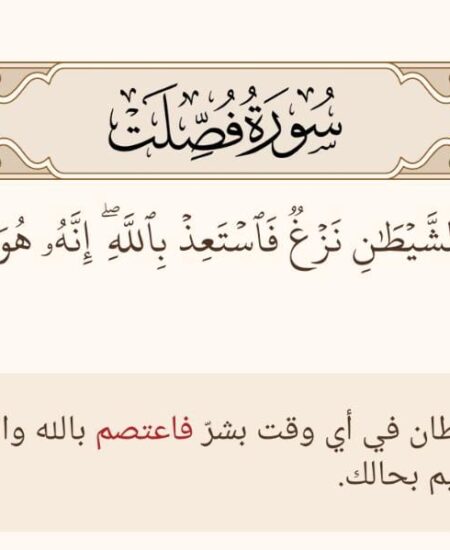 سُورَةُ فُصِّلَتْ
ٱلشَّيْطَٰنِ نَزْغٌ فَٱسْتَعِذْ بِٱللَّهِ ۖ إِنَّهُۥ هُوَ
في أي وقت بشرّ فاعتصم بالله
بحالك.